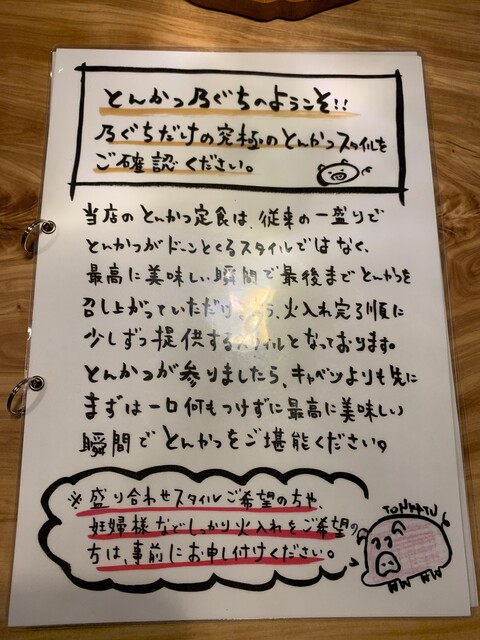 とんかつ乃ぐちへようこそ!!
乃ぐちだけの究極のとんかつスタイルを
ご確認ください。
当店のとんかつ定食は、従来の一盛りで
とんかつがドーンとくるスタイルではなく、
最高に美味しい瞬間で最後までとんかつを
召し上がっていただけ、火入れ完了順に
少しずつ提供するスタイルとなっております。
とんかつが参りましたら、キャベツよりも先に
まずは一口何もつけずに最高に美味しい
瞬間でとんかつをご堪能ください。
※盛り合わせスタイルご希望の方や
妊婦様などしっかり火入れをご希望の
方は、事前にお申し付けください。
TONKATU